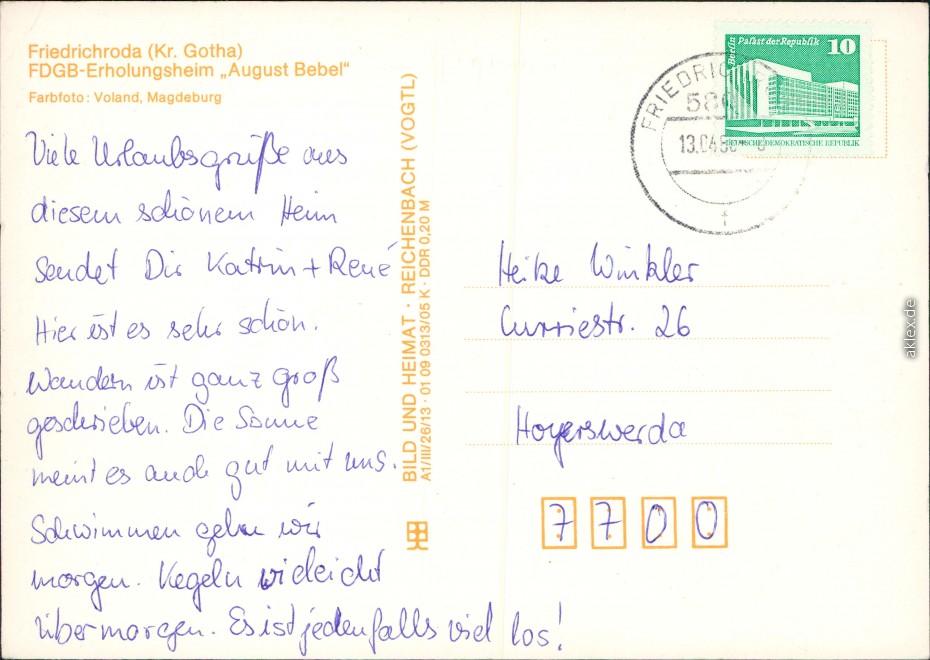 Friedrichroda (Kr. Gotha)
FDGB-Erholungsheim „August Bebel“
Farbfoto: Voland, Magdeburg
Viele Urlaubsgrüße aus
diesem schönem Heim
sendet Dir Katrin + René
Hier ist es sehr schön.
Wandern ist ganz groß
geschrieben. Die Sonne
meint es auch gut mit uns.
Schwimmen gehn wir
morgen. Kegeln vieleicht
übermorgen. Es ist jedenfalls viel los!
BILD UND HEIMAT · REICHENBACH (VOGTL)
A1/III/26/13 · 01 09 0313/05 K · DDR 0,20 M
Berlin Palast der Republik 10
DEUTSCHE DEMOKRATISCHE REPUBLIK
FRIEDRIC
580
13.04
f
Heike Winkler
Curiestr. 26
Hoyerswerda
7700
aklex.de